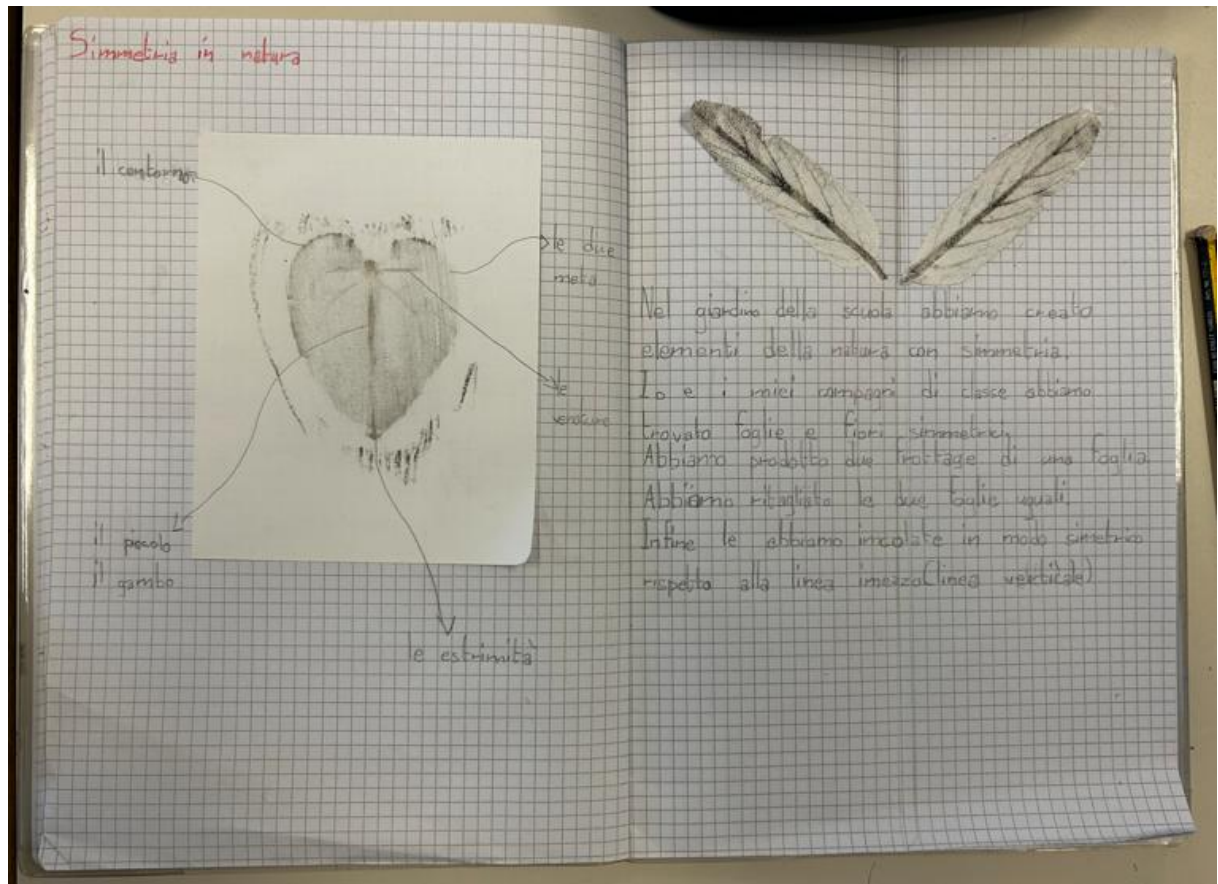 Simmetria in natura
il contorno
le due
metà
le
venature
il picolo
il gambo
le estrimità
Nel giardino della scuola abbiamo creato
elementi della natura con simmetria.
Io e i miei compagni di classe abbiamo
trovato foglie e fiori simmetrici.
Abbiamo prodotto due frottage di una foglia.
Abbiamo ritagliato le due foglie uguali.
Infine le abbiamo incolate in modo simetrico
rispetto alla linea imezzo(linea verticale)